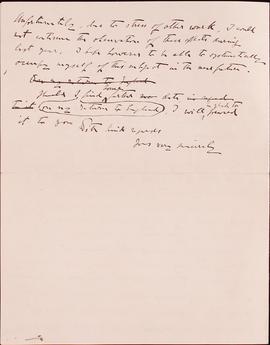 Unfortunately, due to stress of other work, I could
not continue the observation of these effects during
last year. I hope however to be able to systematically
occupy myself of this subject in the near future.
On my return to England
Should I find further new data in regard
to it (on my return to England), I will, forward
it to you With kind regards
Yours very sincerely